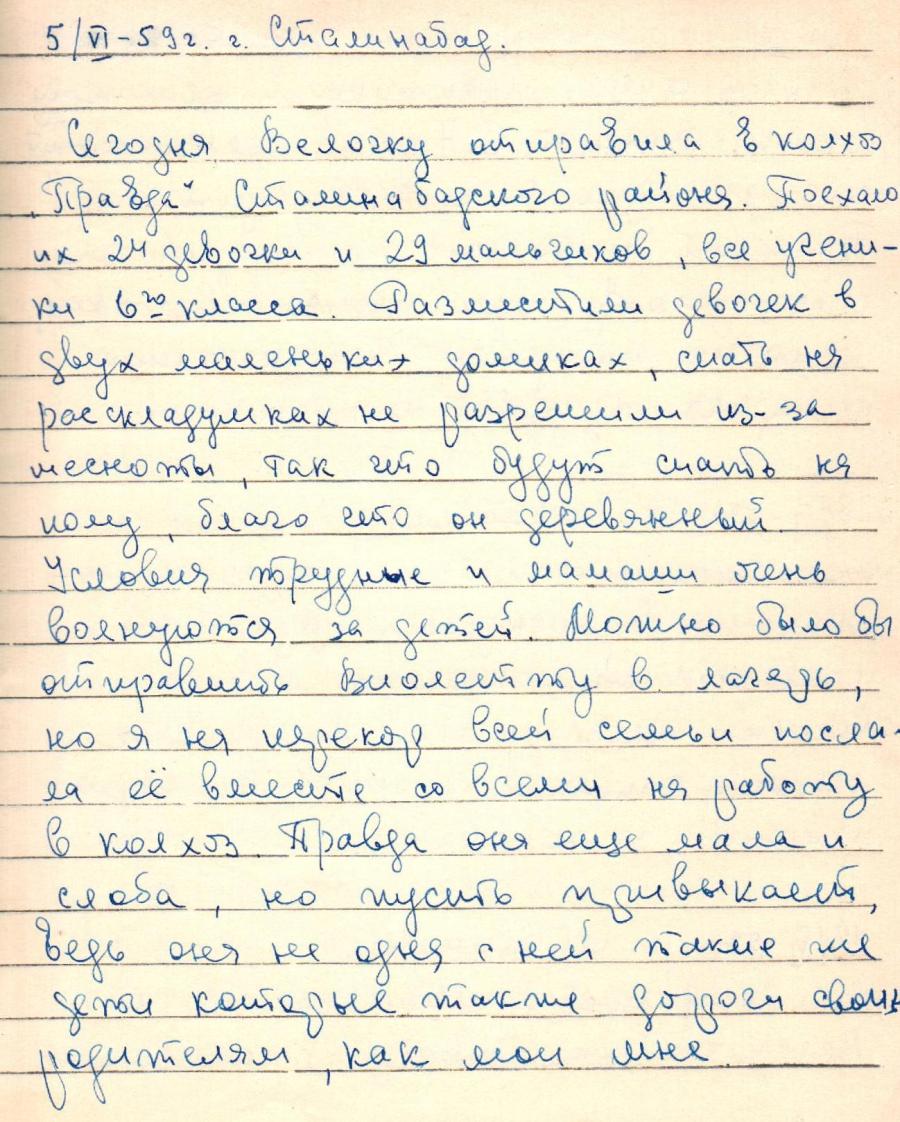 5/VI-59г. г. Сталинабад.
Сегодня Велочку отправила в колхоз
„Правда" Сталинабадского района. Поехало
их 24 девочки и 29 мальчиков, все учени-
ки 6го класса. Разместили девочек в
двух маленьких домиках, спать на
раскладушках не разрешили из-за
тесноты, так что будут спать на
полу, благо что он деревянный.
Условия трудные и мамаши очень
волнуются за детей. Можно было бы
отправить Виолетту в лагерь,
но я на перекор всей семьи посла-
ла её вместе со всеми на работу
в колхоз. Правда она еще мала и
слаба, но пусть привыкает,
ведь она не одна с ней такие же
дети которые также дороги своим
родителям, как мои мне.